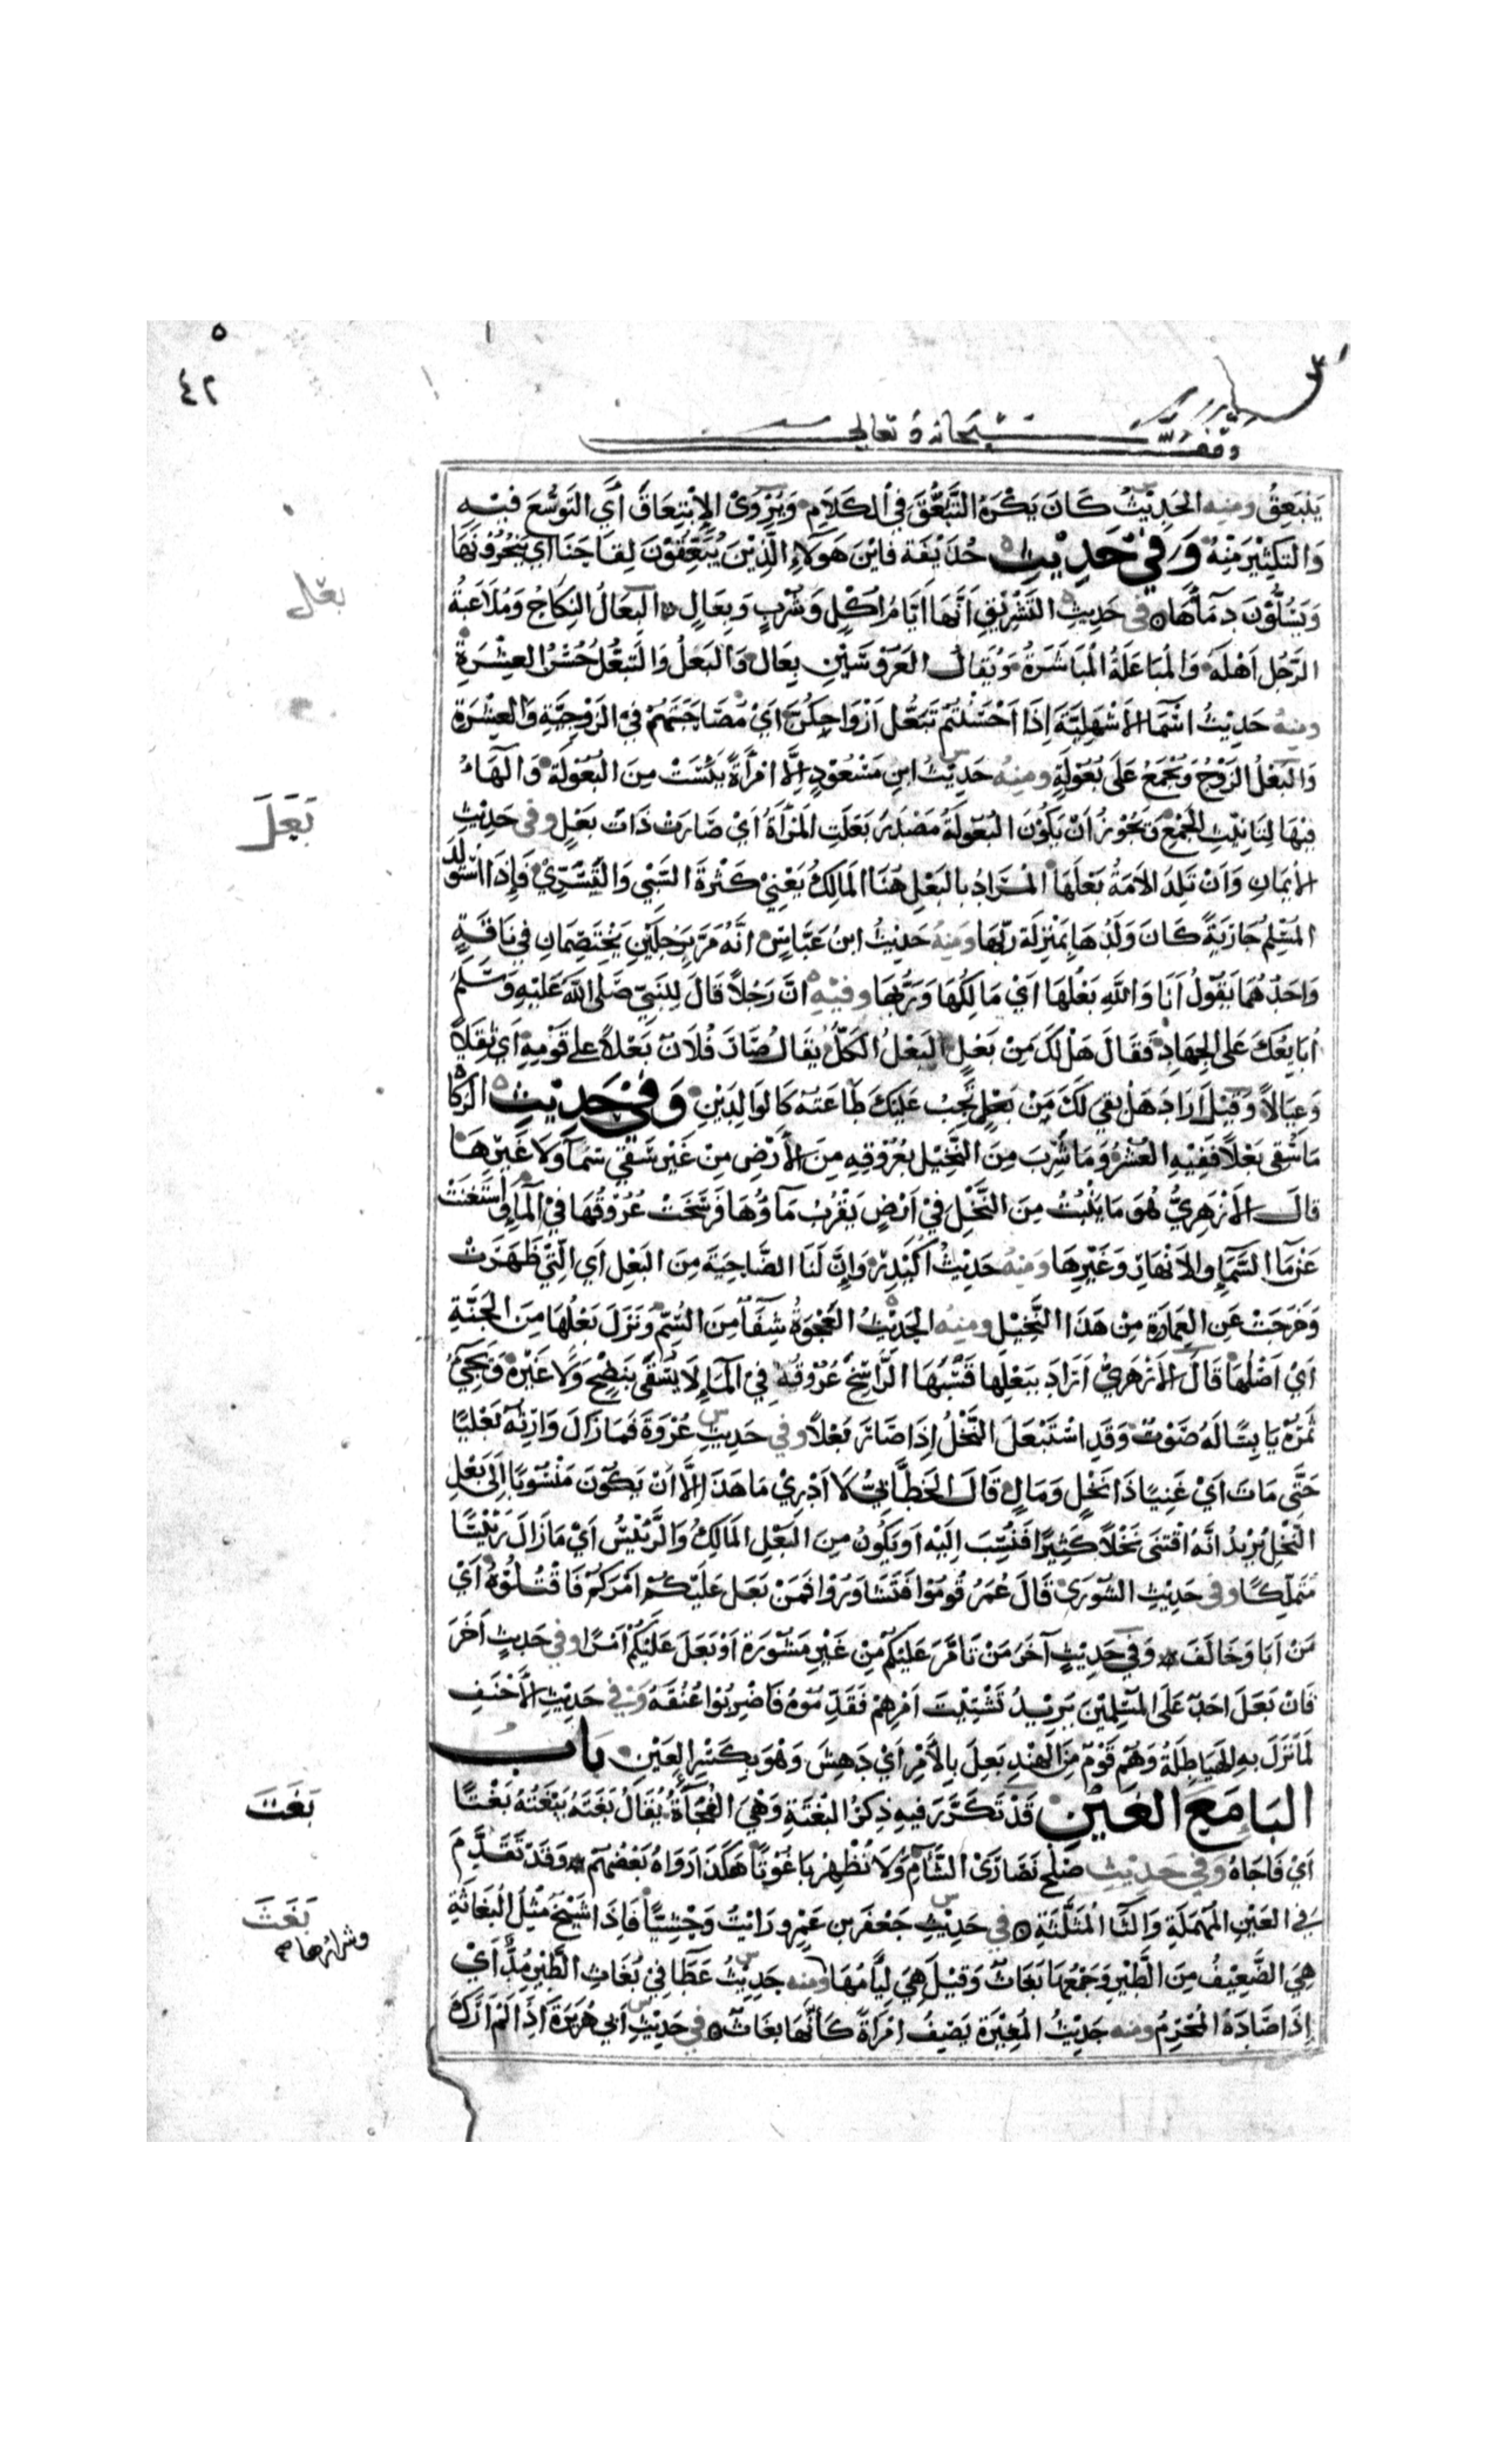 ٤٢
وقف لله سبحانه وتعالى
يَنْبَعِقُ ومنه الحَدِيْثُ كَانَ يَكْرَهُ التَّبَعُّقَ فِي الكَلَامِ وَيُرْوَى الإِنْبِعَاقَ أي التَوَسُّعَ فِيْهِ
وَالتكثِيْرَ مِنْهُ وَفِي حَدِيْثِ حُذَيْفَة فَايْنَ هَؤلَاءِ الَّذِيْنَ يُبَعِّقُوْنَ لِقَاحَنَا أي يَنْحَرُوْنَهَا
وَيَسِيْلُوْنَ دِمَآءَهَا في حَدِيْثِ التَشْرِيْقِ أَنَّهَا أَيَّامُ أَكْلٍ وَشُرْبٍ وَبِعَالٍ البِعَالُ النِكَاحُ وَمُلَاعَبَةُ
الرَّجُلِ أَهْلَهُ وَالمُبَاعَلَةُ المُبَاشَرَةُ وَيُقَالُ العَرُوْسَيْنِ بِعَال وَالبَعلُ وَالتَبَعُّلُ حُسْنُ العِشْرَةِ
ومنهُ حَدِيْثُ اسْمَا الأَشْهَلِيَّةِ اِذَا اَحْسَنْتُمْ تَبَعُّلَ اَزْوَاجِكُنَّ اَيْ مُصَاحَبَتهُمْ فِي الزَوْجِيَّةِ وَالعِشْرَةِ
وَالبَعْلُ الزَوْجُ وَيُجْمَعُ عَلَى بُعُوْلَةٍ ومنهُ حَدِيْثُ ابنِ مَسْعُوْدٍ اِلَّا امْرَأَةً يَئِسَتْ مِنَ البُعُوْلَةِ وَالهَاءُ
فِيْهَا لِتَانِيْثِ الجَمْعِ وَيَجُوْزُ أَنْ يَكُوْنَ البُعُوْلَةُ مَصْدَرَ بَعَلَتِ المَرْأَةُ اَيْ صَارَتْ ذَاتَ بَعْلٍ وفي حَدِيْثِ
الأِيْمَانِ وَاَنْ تَلِدَ الاَمَةُ بَعْلَهَا المُرَادُ بِالبَعْلِ هٰهُنَا المَالِكُ يَعْنِيْ كَثْرَةَ السَّبْيِ وَالتَسَرِّيْ فَإِذَا اسْتَوْلَدَ
المُسْلِمُ جَارِيَةً كَانَ وَلَدُهَا بِمَنْزِلَةِ رَبِّهَا ومنهُ حَدِيْثُ ابنِ عَبَّاسٍ انَّهُ مَرَّ بِرَجُلَيْنِ يَخْتَصِمَانِ فِي نَاقَةٍ
وَاحَدُهُمَا يَقُوْلُ أَنَا وَاللهِ بَعْلُهَا أَيْ مَالِكُهَا وَرَبُّهَا وفيهِ انَّ رَجُلًا قَالَ لِلنَبِيِّ صَلى اللهُ عَلَيْهِ وَسَلَّمَ
أُبَايِعُكَ عَلَى الجِهَادِ فَقَالَ هَلْ لَكَ مِنْ بَعْلٍ البَعْلُ الكَلُّ يُقَالُ صَارَ فُلَانٌ بَعْلًا على قَوْمِهِ أَي ثِقَلًا
وَعِيَالًا وَقِيْلَ اَرَادَ هَلْ بَقِيَ لَكَ مَنْ يَجِبُ عَلَيْكَ طَاعَتُهُ كَالوَالِدَيْنِ وَفِيْ حَدِيْثِ الزَكَا
مَا سُقِيَ بَعْلًا فَفِيْهِ العُشْرُ وَمَا شَرِبَ مِنَ النَخِيْلِ بِعُرُوْقِهِ مِنَ الأَرْضِ مِنْ غَيْرِ سَقْيِ سَمَآءٍ وَلَا غَيْرِهَا
قَالَ الأَزْهَرِيُّ هُوَ مَا يَنْبُتُ مِنَ النَّخْلِ فِيْ اَرْضٍ يَقْرُبُ مَآؤُهَا فَرَسَخَتْ عُرُوْقُهَا فِي المَآءِ وَاسْتَغْنَتْ
عَنْ مَآءِ السَّمَآءِ وَالاَنْهَارِ وَغَيْرِهَا ومنهُ حَدِيْثُ اُكَيْدِرَ وَإِنَّ لَنَا الضَّاحِيَةَ مِنَ البَعْلِ اَي الَّتِيْ ظَهَرَتْ
وَخَرَجَتْ عَنِ العِمَارَةِ مِنْ هَذَا النَّخِيْلِ ومنهُ الحَدِيْثُ العَجْوَةُ شِفَآءٌ مِنَ السُّمِّ وَنَزَلَ بَعْلُهَا مِنَ الجَنَّةِ
اَيْ اَصْلُهَا قَالَ الأَزْهَرِيُّ اَرَادَ بِبَعْلِهَا قَسْبَهَا الرَّاسِخَ عُرُوْقُهُ فِي المَآءِ لَا يُسْقَى بِنَضْحٍ وَلَا غَيْرِهِ وَيَجِيْءُ
ثَمَرُهُ يَابِسًا لَهُ صَوْتٌ وَقَدِ اسْتَبْعَلَ النَخْلُ اِذَا صَارَ بَعْلًا وفي حَدِيْثِ عُرْوَةَ فَمَا زَالَ وَارِثُهُ بَعْلِيًا
حَتَّى مَاتَ اَيْ غَنِيًا ذَا نَخْلٍ وَمَالٍ قَالَ الخَطَّابِيُّ لَا اَدْرِيْ مَا هَذَا اِلَّا اَنْ يَكُوْنَ مَنْسُوْبًا اِلَى بَعْلِ
النَّخْلِ يُرِيْدُ انَّهُ اقْتَنَى نَخْلًا كَثِيْرًا فَنُسِبَ اِلَيْهِ اَو يَكُوْنُ مِنَ البَعْلِ المَالِكُ وَالرَّئِيْسُ اَيْ مَا زَالَ رَئِيْسًا
مُتَمَلِّكًا وفي حَدِيْثِ الشُوْرَى قَالَ عُمَرُ قُوْمُوا فَتَشَاوَرُوْا فَمَنْ بَعَلَ عَلَيْكُمْ اَمْرَكُمْ فَاقْتُلُوْهُ اَيْ
مَنْ اَبَا وَخَالَفَ وَفِي حَدِيْثٍ آخَرَ مَنْ تَاَمَّرَ عَلَيْكُمْ مِنْ غَيْرِ مَشُوْرَةٍ اَوْ بَعَلَ عَلَيْكُمْ اَمْرًا وفي حَدِيْثٍ آخَرَ
فَاِنْ بَعَلَ اَحَدٌ عَلَى المُسْلِمِيْنَ يُرِيْدُ تَشْتِيْتَ اَمْرِهِمْ فَقَدِّمُوْهُ فَاضْرِبُوْا عُنُقَهُ وَفِي حَدِيْثِ الأَحْنَفِ
لَمَا نَزَلَ بِهِ الهَيَاطِلَةُ وَهُمْ قَوْمٌ مِنَ الهِنْدِ بَعِلَ بِالأَمْرِ اَيْ دَهِشَ وَهُوَ بِكَسْرِ العَيْنِ بَابُ
البَا مَعَ الغَيْنِ قَدْ تَكَرَّرَ فِيهِ ذِكْرُ البَغْتَةِ وَهْيَ الفُجَاْةُ يُقَالُ بَغَتَهُ يَبْغَتُهُ بَغْتًا
اَيْ فَاجَاهُ وَفِي حَدِيْثِ صُلْحِ نَصَارَى الشَّامِ وَلَا نُظْهِرُ بَاغُوْتًا هَكَذَا رَوَاهُ بَعْضُهُمْ وَقَدْ تَقَدَّمَ
فِي العَيْنِ المُهْمَلَةِ وَالثَا المُثَلَّثَةِ في حَدِيْثِ جَعْفَرِ بن عَمْرٍو رَايْتُ وَحْشِيًّا فَاِذَا شَيْخٌ مِثْلُ البُغَاثَةِ
هِيَ الضَّعِيْفُ مِنَ الطَّيْرِ وَجَمْعُهَا بُغَاثٌ وَقِيْلَ هِيَ لِئَامُهَا ومنه حَدِيْثُ عَطَا فِيْ بُغَاثِ الطَّيْرِ مُدٌّ اَيْ
اِذَا صَادَهُ المُحْرِمُ ومنه حَدِيْثُ المُغِيْرَةِ يَصِفُ امْرَاةً كَاَنَّهَا بُغَاثٌ في حَدِيْثِ اَبي هُرَيْرَةَ اِذَا لَمْ اَرَكَ
بعل
بَعَلَ
بَغَتَ
بَغَثَ